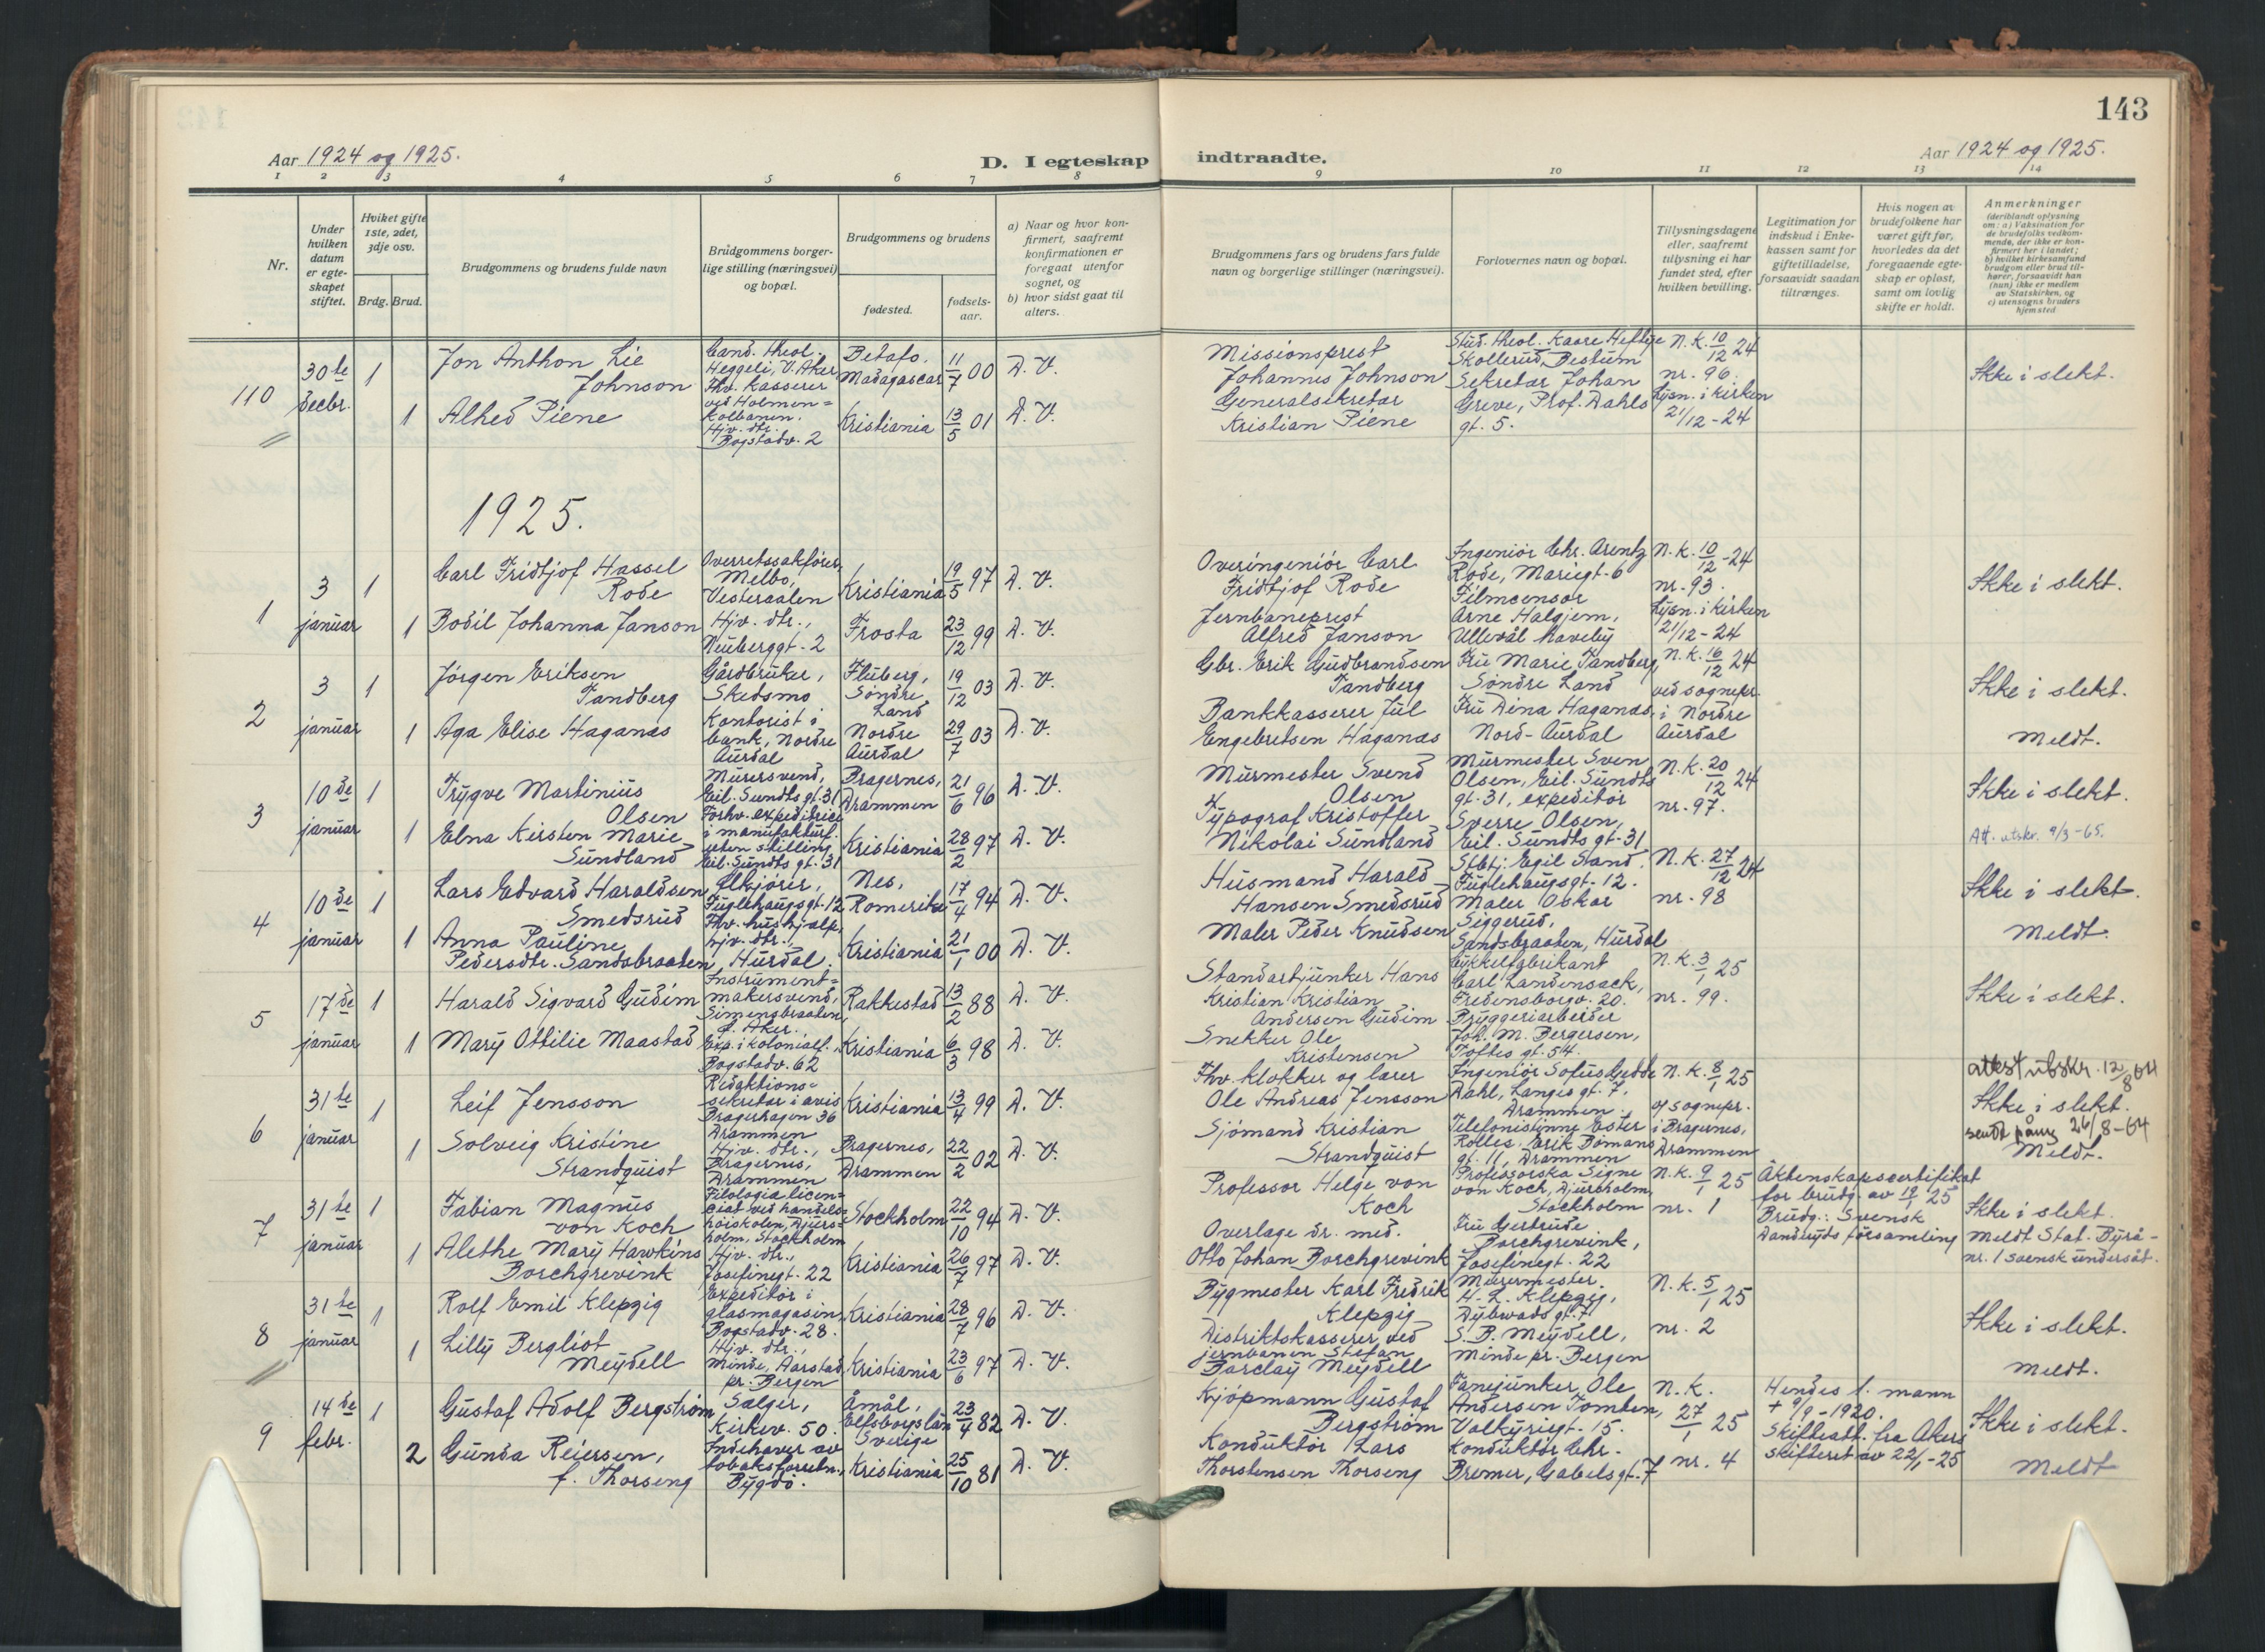 143
Aar 1924 og 1925.
D. I egteskap indtraadte.
Aar 1924 og 1925.
1 2 3 4 5 6 7 8 9 10 11 12 13 14
Nr.
Under
hvilken
datum
er egte-
skapet
stiftet.
Hviket gifte
1ste, 2det,
3dje osv.
Brdg. Brud.
Brudgommens og brudens fulde navn
Brudgommens borger-
lige stilling (næringsvei)
og bopæl.
Brudgommens og brudens
fødested.
fødsels-
aar.
a) Naar og hvor kon-
firmert, saafremt
konfirmationen er
foregaat utenfor
sognet, og
b) hvor sidst gaat til
alters.
Brudgommens fars og brudens fars fulde
navn og borgerlige stillinger (næringsvei).
Forlovernes navn og bopæl.
Tillysningsdagene
eller, saafremt
tillysning ei har
fundet sted, efter
hvilken bevilling.
Legitimation for
indskud i Enke-
kassen samt for
giftetilladelse,
forsaavidt saadan
tiltrænges.
Hvis nogen av
brudefolkene har
været gift før,
hvorledes da det
foregaaende egte-
skap er opløst,
samt om lovlig
skifte er holdt.
Anmerkninger
(deriblandt oplysning
om: a) Vaksination for
de brudefolks vedkom-
mende, der ikke er kon-
firmert her i landet;
b) hvilket kirkesamfund
brudgom eller brud til-
hører, forsaavidt han
(hun) ikke er medlem
av Statskirken, og
c) utensogns bruders
hjemsted
110
30te
decbr.
1
Jon Anthon Lie
Johnson
Cand. theol.
Heggeli, V. Aker
Betafo,
Madagascar
11/7 00
D. V.
Missionsprest
Johannes Johnson
Stud. theol. Kaare Heftye
Skollerud, Bestum
N. K. 10/12 24
nr. 96.
Ikke i slekt.
1
Alhed Piene
Fhv. kasserer
ved Holmen=
kolbanen,
Hjv. dtr.
Bogstadv. 2
Kristiania
13/5 01
D. V.
Generalsekretær
Kristian Piene
Sekretær Johan
Greve, Prof. Dahls
gt. 5.
Lysn. i kirken
21/12-24
1925.
1
3
januar
1
Carl Fridtjof Hassel
Rode
Overretssakfører,
Melbo,
Vesteraalen
Kristiania
19/5 97
D. V.
Overingeniør Carl
Fridtjof Rode
Ingeniør Chr. Arentz
Rode, Mariegt. 6
N. K. 10/12-24
nr. 93.
Ikke i slekt.
1
Bodil Johanna Janson
Hjv. dtr.,
Neuberggt. 2
Frosta
23/12 99
D. V.
Jernbaneprest
Alfred Janson
Filmcensor
Arne Halgjem,
Ullevål haveby
Lysn. i kirken
21/12-24
2
3
januar
1
Jörgen Eriksen
Tandberg
Gårdbruker,
Skedsmo
Fluberg,
Söndre
Land
19/12 03
D. V.
Gbr. Erik Gudbrandsen
Tandberg
Fru Marie Tandberg,
Söndre Land
N. K. 16/12 24
ved sognepr.
i Nordre
Aurdal
Ikke i slekt.
1
Aga Elise Haganæs
Kontorist i
bank, Nordre
Aurdal
Nordre
Aurdal
29/7 03
D. V.
Bankkasserer Jul
Engebretsen Haganæs
Fru Dina Haganæs,
Nord-Aurdal
Meldt.
3
10de
januar
1
Trygve Martinius
Olsen
Murersvend,
Eil. Sundts gt. 31
Bragernes,
Drammen
21/6 96
D. V.
Murmester Svend
Olsen
Murmester Sven
Olsen, Eil. Sundts
gt. 31, expeditör
N. K. 20/12 24
nr. 97.
Ikke i slekt.
1
Elna Kirsten Marie
Sundland
Forhv. expeditrice
i manufakturf.
uten stilling
Eil. Sundts gt. 31
Kristiania
28/2 97
D. V.
Typograf Kristoffer
Nikolai Sundland
Sverre Olsen,
Eil. Sundts gt. 31
Att. utskr. 9/3-65.
4
10de
januar
1
Lars Edvard Haraldsen
Smedsrud
Fuglehaugsgt. 12
Nes,
Romerike
17/4 94
D. V.
Husmand Harald
Hansen Smedsrud
Fuglehaugsgt. 12.
N. K. 27/12 24
nr. 98
Ikke i slekt.
1
Anna Pauline
Pedersdtr. Sandsbraaten
Fhv. hushjælp,
hjv. dtr.,
Hurdal.
Kristiania
21/1 00
D. V.
Maler Peder Knudsen
Maler Oskar
Siggerud,
Sandsbraaten, Hurdal
Meldt.
5
17de
januar
1
Harald Sigvard Gudim
Instrument=
makersvend,
Simensbraaten,
Ø. Aker.
Rakkestad
13/2 88
D. V.
Standartjunker Hans
Kristian Kristian
Andersen Gudim
Cykkelfabrikant
Carl Landensack,
Fredensborgv. 20.
N. K. 3/1 25
nr. 99.
Ikke i slekt.
1
Mary Ottilie Maastad
Exp. i kolonialf.
Bogstadv. 62
Kristiania
6/3 98
D. V.
Snekker Ole
Kristensen
Bryggeriarbeider
Joh. M. Bergersen,
Toftes gt. 54.
6
31te
januar
1
Leif Jensson
Redaktions=
sekretær i avis
Bragerhagen 36
Drammen
Kristiania
13/4 99
D. V.
Fhv. klokker og lærer
Ole Andreas Jensson
Ingeniør Sofus Gedde
Dahl, Langes gt. 7,
Drammen.
N. K. 8/1 25
af sognepr.
i Bragernes,
Drammen
attest utskr. 12/8 64
Ikke i slekt.
1
Solveig Kristine
Strandquist
Hjv. dtr.,
Bragernes,
Drammen
Bragernes,
Drammen
22/2 02
D. V.
Sjömand Kristian
Strandquist
Telefonistinne Ester
Rolles, Erik Börmans
gt. 11, Drammen
26/8-64
Meldt.
7
31te
januar
1
Fabian Magnus
von Koch
Filologie licen=
ciat ved handels=
höiskolen, Djurs=
holm, Stockholm
Stockholm
22/10 94
D. V.
Professor Helge von
Koch
Professorska Signe
von Koch, Djursholm,
Stockholm
N. K. 9/1 25
nr. 1
Äktenskapscertifikat
for brudg. av 19/1 25
Brudg.: Svensk
Danderyds församling
Ikke i slekt.
1
Alethe Mary Hawkins
Borchgrevink
Hjv. dtr.,
Josefinegt. 22
Kristiania
26/7 97
D. V.
Overlæge dr. med.
Otto Johan Borchgrevink
Fru Gertrude
Borchgrevink,
Josefinegt. 22
Meldt Stat. Byrå-
nr. 1 svensk undersåt.
8
31te
januar
1
Rolf Emil Klepzig
Expeditör i
glasmagasin,
Bogstadv. 28.
Kristiania
28/7 96
D. V.
Bygmester Karl Fredrik
Klepzig
Murermester
H. L. Klepzig,
Dybwads gt. 7
N. K. 5/1 25
nr. 2
Ikke i slekt.
1
Lilly Bergliot
Meydell
Hjv. dtr.,
Minde, Aarstad
pr. Bergen
Kristiania
23/6 97
D. V.
Distriktskasserer ved
jernbanen Stefan
Barclay Meydell
S. B. Meydell,
Minde pr. Bergen
Meldt.
9
14de
febr.
1
Gustaf Adolf Bergström
Sælger,
Kirkev. 50.
Åmål,
Elfsborgslän
Sverige
23/4 82
D. V.
Kjöpmann Gustaf
Bergström
Fanejunker Ole
Andersen Tomten,
Valkyriegt. 15.
N. K.
27/1 25
nr. 4
Hendes f. mann
+ 9/9-1920.
Skifteatt. fra Akers
skifteret av 22/1-25
Ikke i slekt.
2
Gunda Reiersen,
f. Thorseng
Indehaver av
tobaksforretn.,
Bygdö.
Kristiania
25/10 81
D. V.
Konduktör Lars
Thorstensen Thorseng
Konduktör Chr.
Bremer, Gabels gt. 7
Meldt